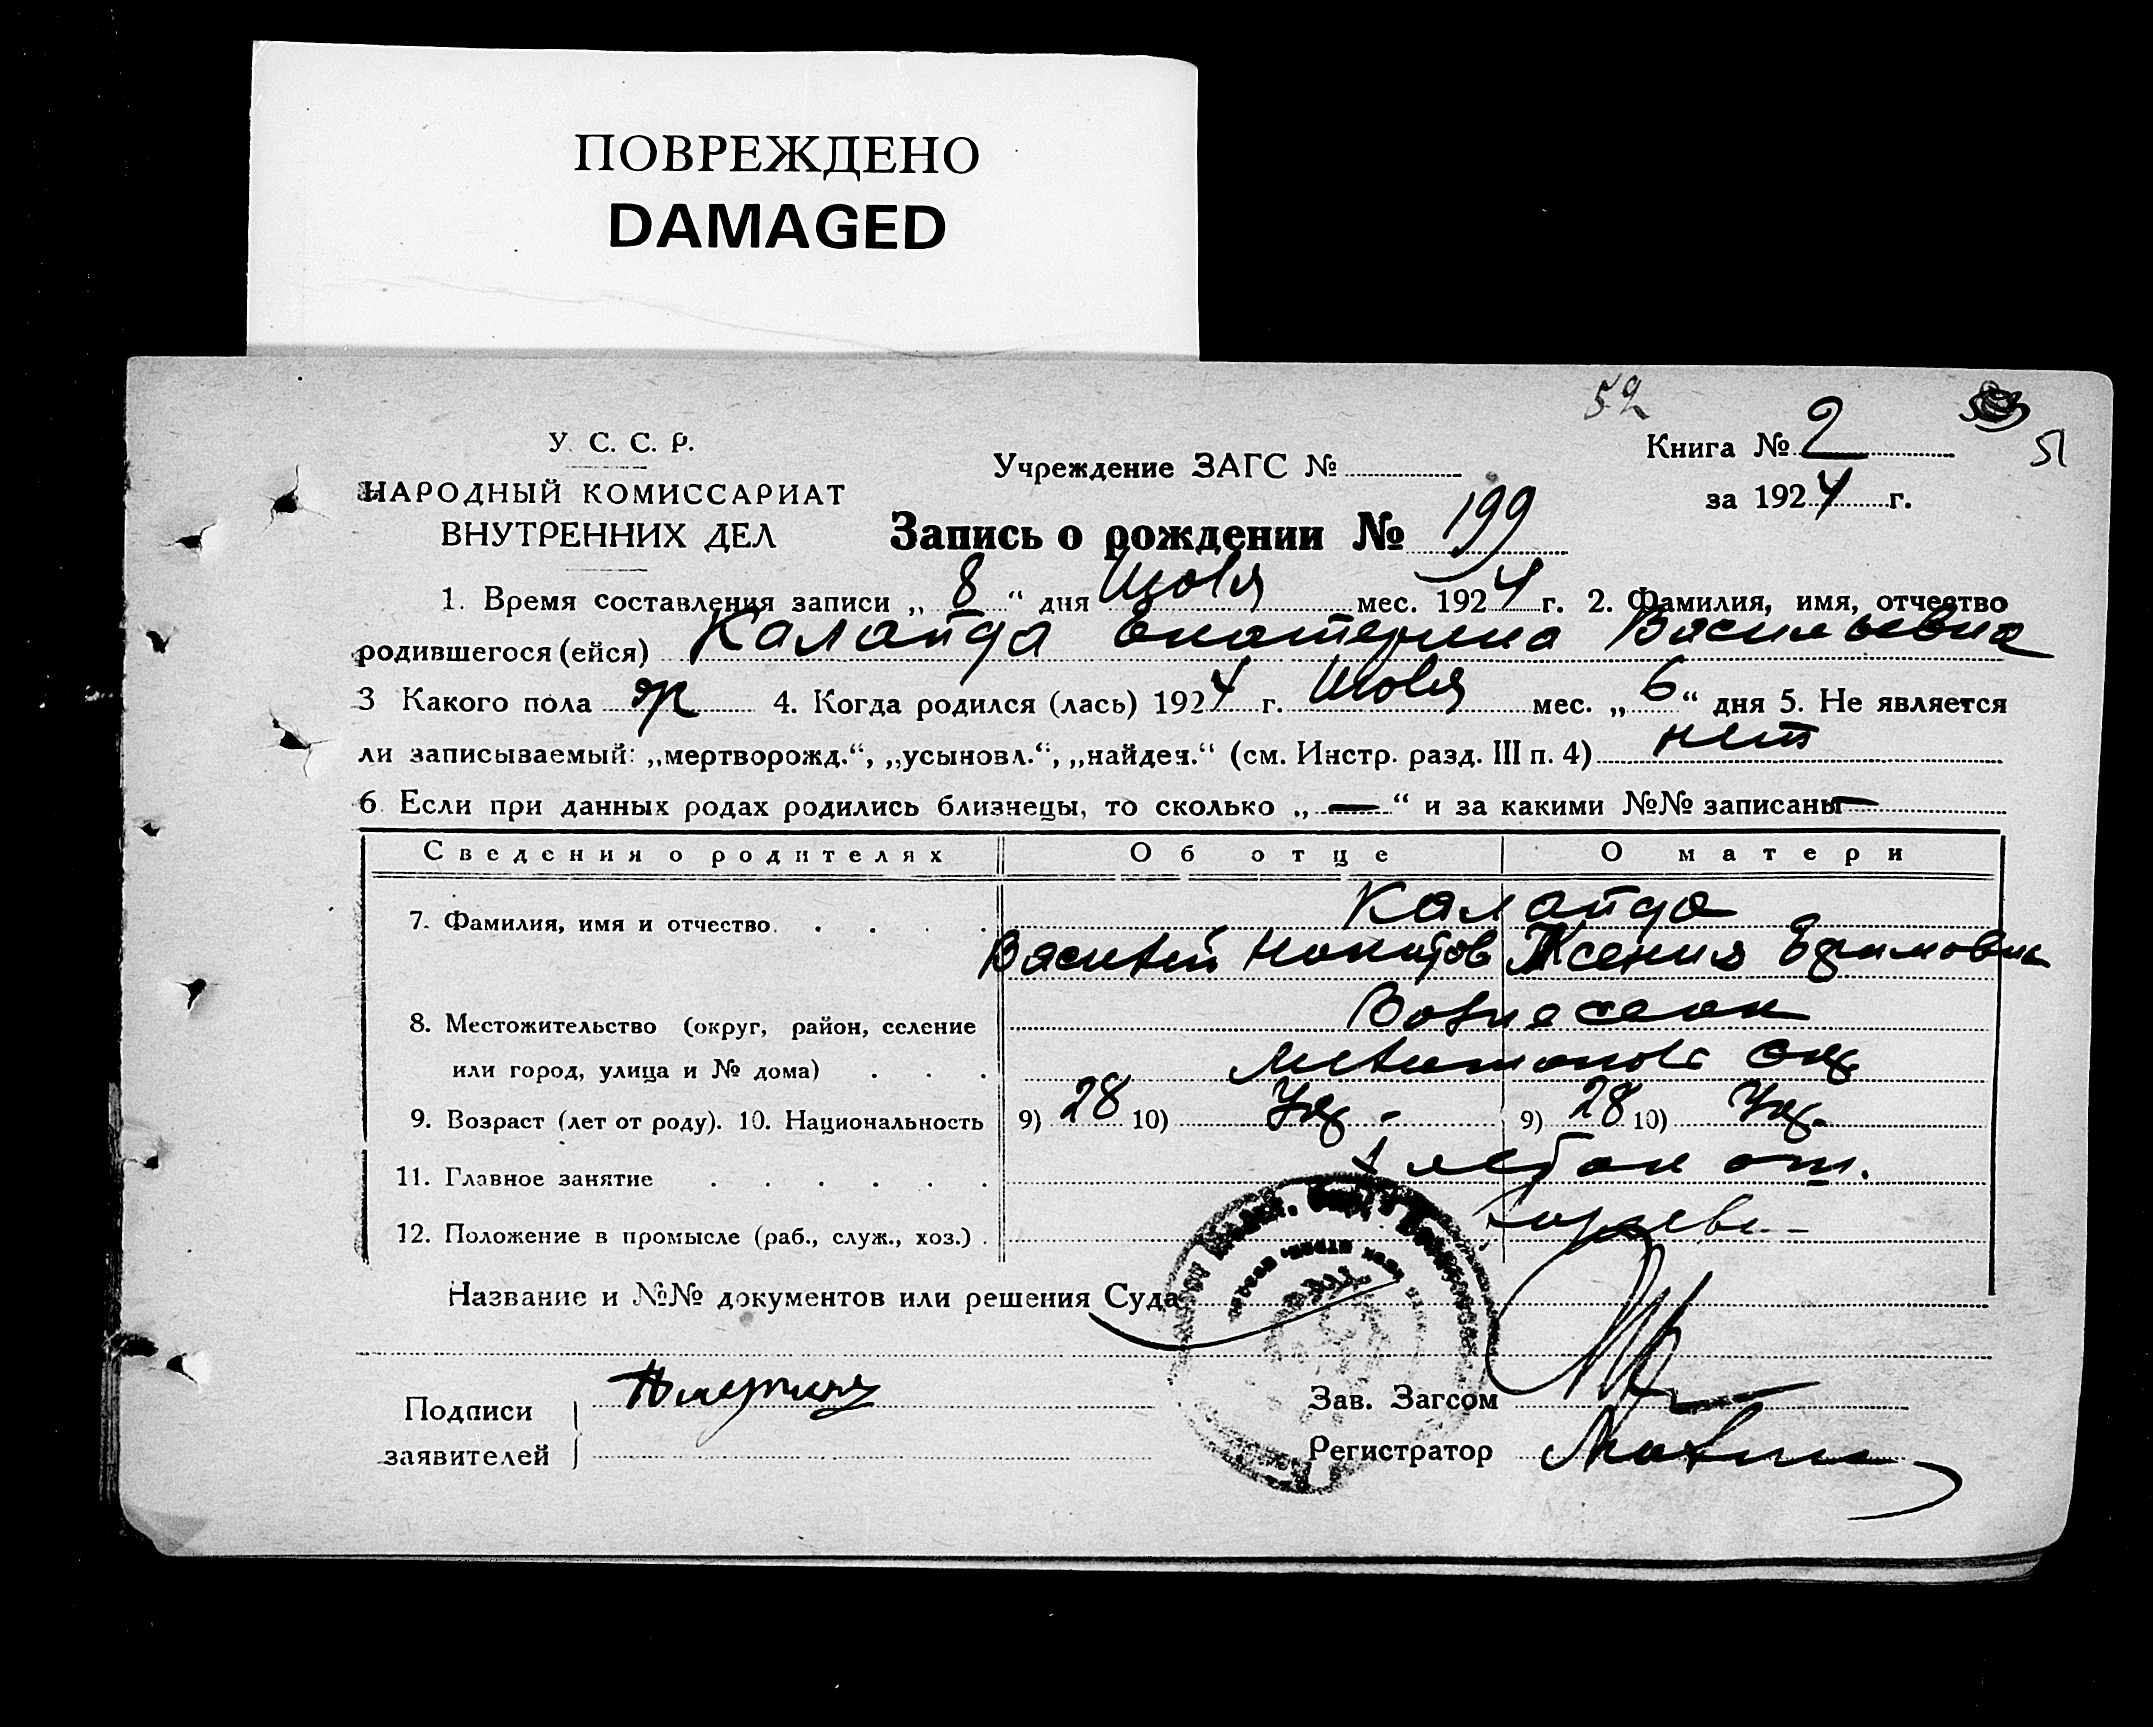 ПОВРЕЖДЕНО
DAMAGED
52
51
У. С. С. Р.
НАРОДНЫЙ КОМИССАРИАТ
ВНУТРЕННИХ ДЕЛ
Учреждение ЗАГС №
Книга № 2
за 1924 г.
Запись о рождении № 199
1. Время составления записи „ 8 “ дня Июля мес. 1924 г. 2. Фамилия, имя, отчество
родившегося (ейся) Калайда Екатерина Васильевна
3 Какого пола ж 4. Когда родился (лась) 1924 г. Июля мес. „ 6 “ дня 5. Не является
ли записываемый: „мертворожд.“, „усыновл.“, „найден.“ (см. Инстр. разд. III п. 4) нет
6. Если при данных родах родились близнецы, то сколько „ — “ и за какими №№ записаны —
Сведения о родителях Об отце О матери
7. Фамилия, имя и отчество. . . . . Калайда
Василий Никитов Ксения Ефимовна
8. Местожительство (округ, район, селение
или город, улица и № дома) . . .
9. Возраст (лет от роду). 10. Национальность 9) 28 10) Укр. 9) 28 10) Укр.
11. Главное занятие . . . . . .
12. Положение в промысле (раб., служ., хоз.) .
Название и №№ документов или решения Суда
Подписи
заявителей
Зав. Загсом
Регистратор